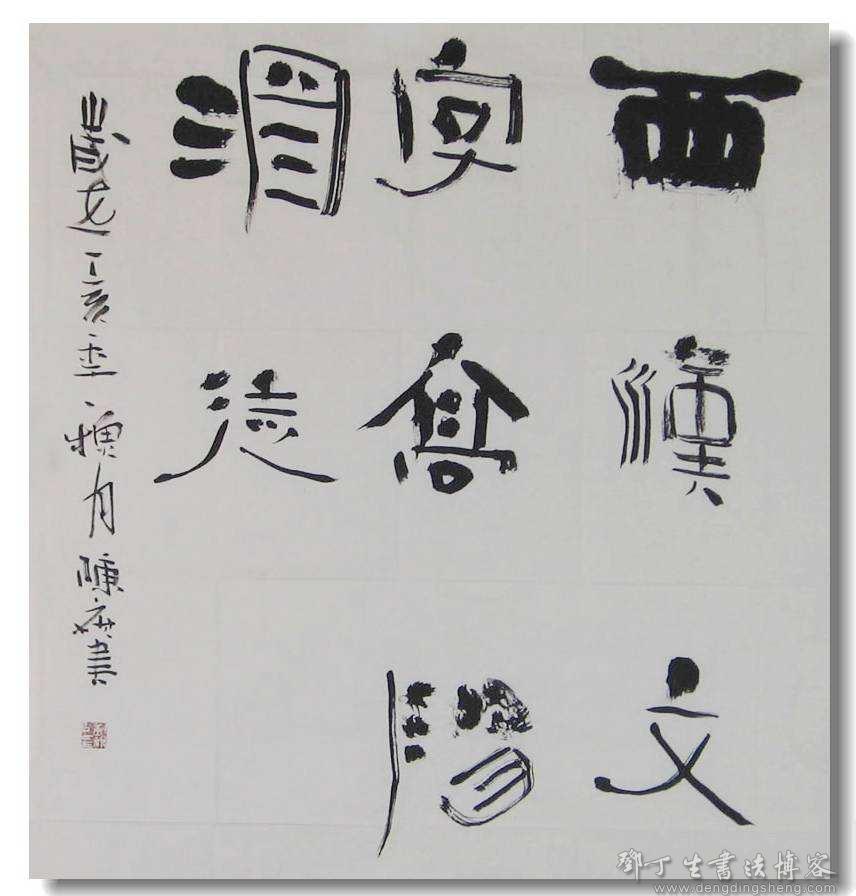 西漢文
字高陽
酒徒
歲在丁亥年穐月陳書
鄧丁生書法博客
www.dengdingsheng.com